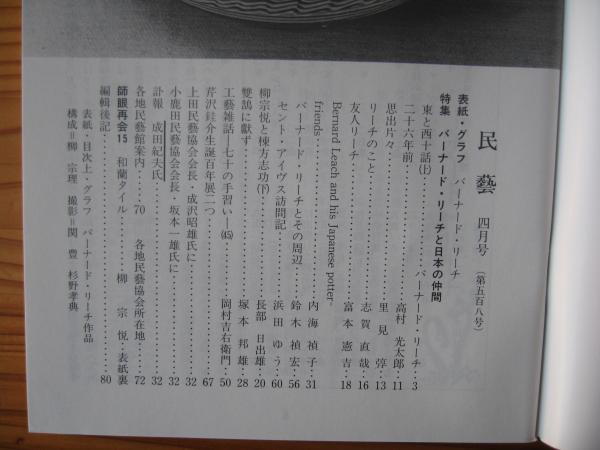 民藝　四月号（第五百八号）
表紙・グラフ　バーナード・リーチ
特集　バーナード・リーチと日本の仲間
東と西十話(上)……バーナード・リーチ…3
二十六年前……高村　光太郎…11
思出片々……里見　弴…13
リーチのこと……志賀　直哉…16
友人リーチ……富本　憲吉…18
Bernard Leach and his Japanese potter-
friends……内海　禎子…31
バーナード・リーチとその周辺……鈴木　禎宏…56
セント・アイヴス訪問記……浜田　ゆう…60
柳宗悦と棟方志功(下)……長部　日出雄…20
雙鵠に獻ず……塚本　邦雄…28
工藝雑話―七十の手習い―(45)……岡村吉右衛門…50
芹沢銈介生誕百年展二つ……67
上田民藝協会会長・成沢昭雄氏に……32
小鹿田民藝協会会長・坂本一雄氏に……32
訃報　成田紀夫氏……32
各地民藝館案内……70　各地民藝協会所在地……72
師眼再会15　和蘭タイル……柳　宗　悦・表紙裏
編輯後記……80
表紙・目次上・グラフ　バーナード・リーチ作品
構成＝柳　宗理　撮影＝関　豊　杉野孝典